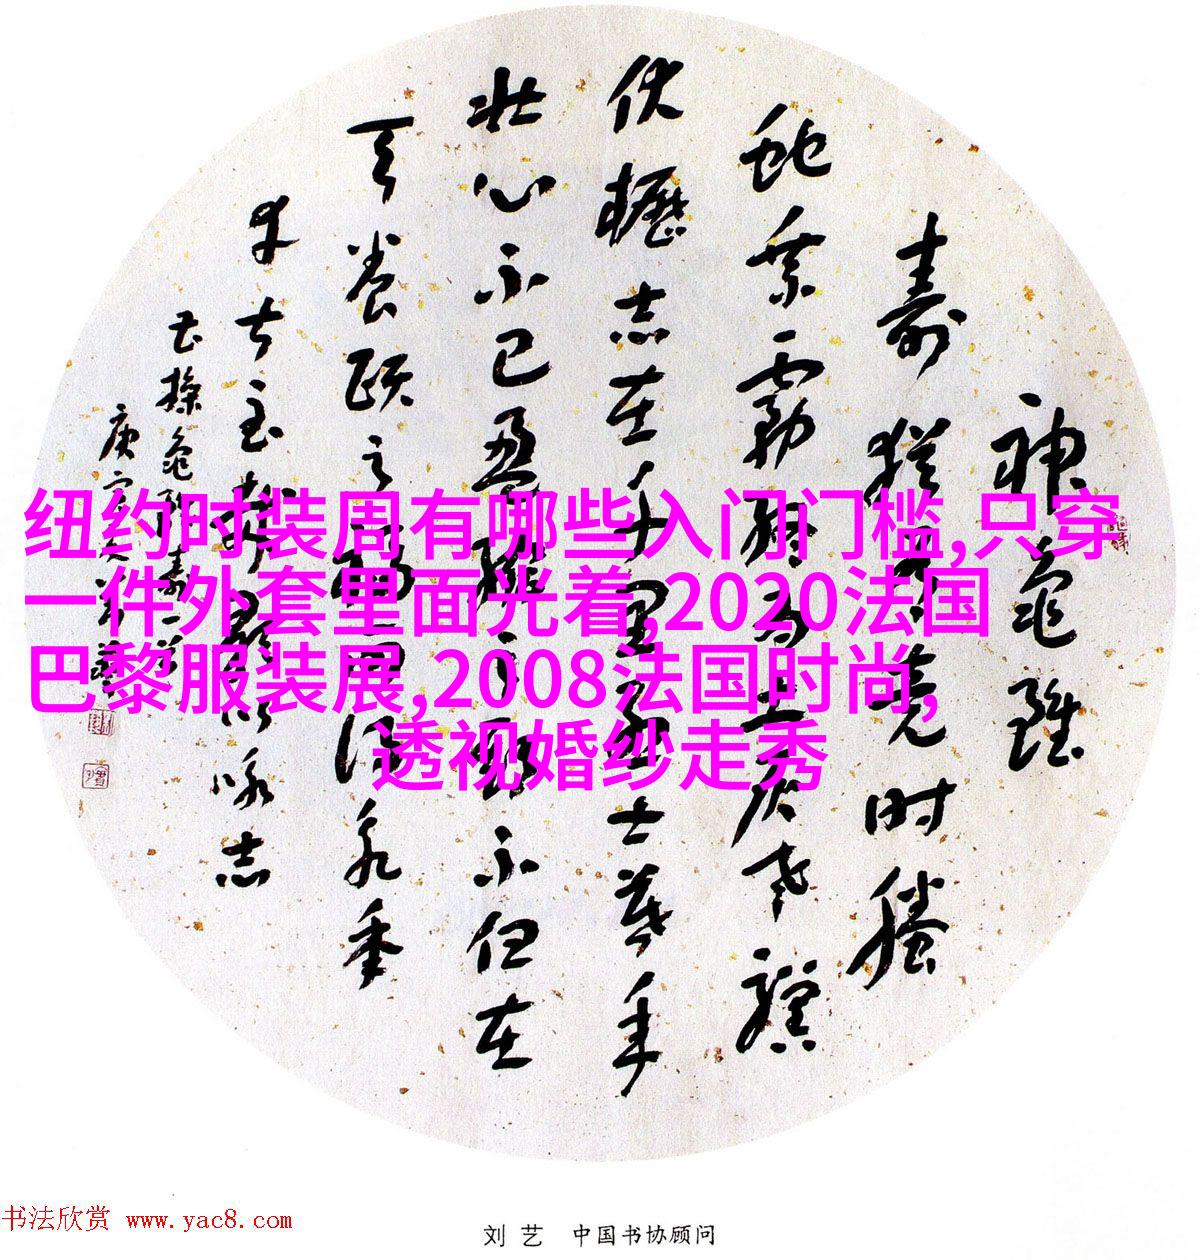 神龜雖
壽猶有竟时螣
蛇乘霧终為土灰老驥
伏櫪志在千里烈士暮年
壮心不已盈縮之期不但在
天養頤之福可得永年
幸甚至哉歌以咏志
曹操龜雖壽
庚寅
纽约时装周有哪些入门门槛,只穿
一件外套里面光着,2020法国
巴黎服装展,2008法国时尚,
透视婚纱走秀
书法欣赏 www.yac8.com
刘艺 中国书协顾问